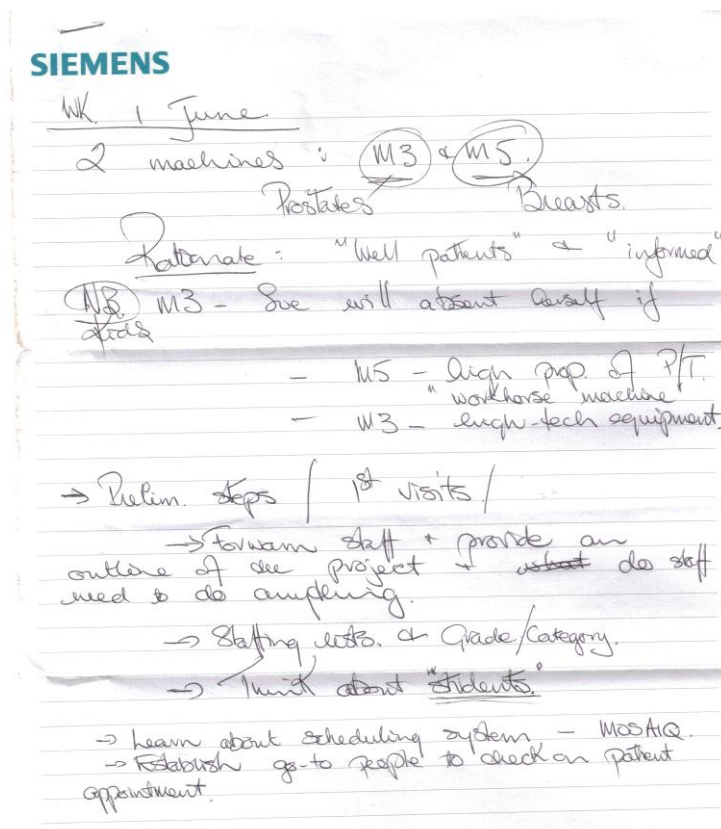 SIEMENS
WK. 1 June.
2 machines : M3 & M5.
Prostates Breasts.
Rationale : "Well patients" & "informed"
NB. M3 - Sue will absent herself if
- M5 - high prop. of P/T.
"workhorse machine"
- M3 - high-tech equipment.
→ Prelim. steps / 1st visits /
→ Forwarn staff + provide an
outline of the project + do staff
need to do anything.
→ Staffing lists. & Grade/Category.
→ Think about "students."
→ Learn about scheduling system - MOSAIQ.
→ Establish go-to people to check on patient
appointment.